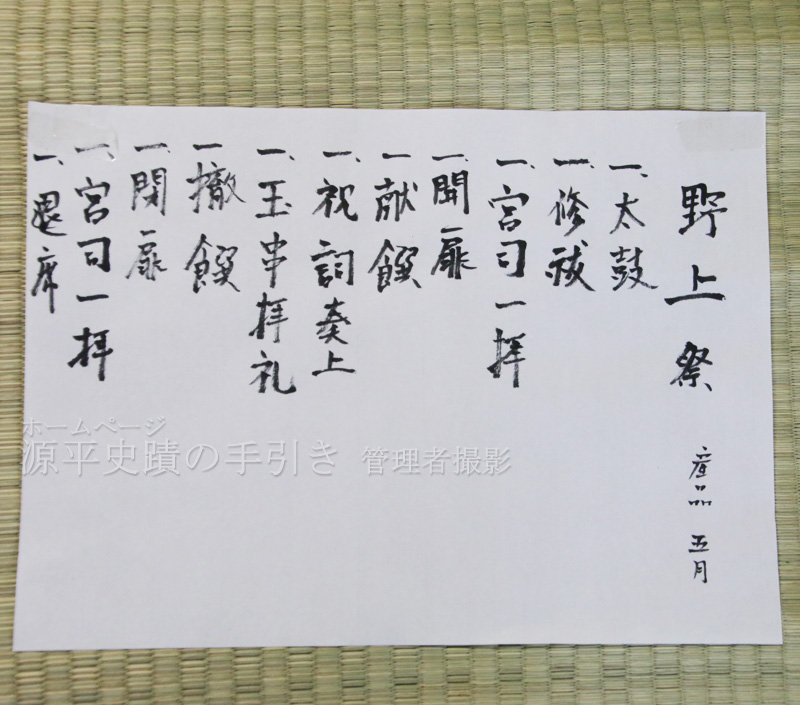 野上祭 産品 五月
一、太鼓
一、修祓
一、宮司一拝
一、開扉
一、献饌
一、祝詞奏上
一、玉串拝礼
一、撤饌
一、閉扉
一、宮司一拝
一、退席
ホームページ
源平史蹟の手引き 管理者撮影